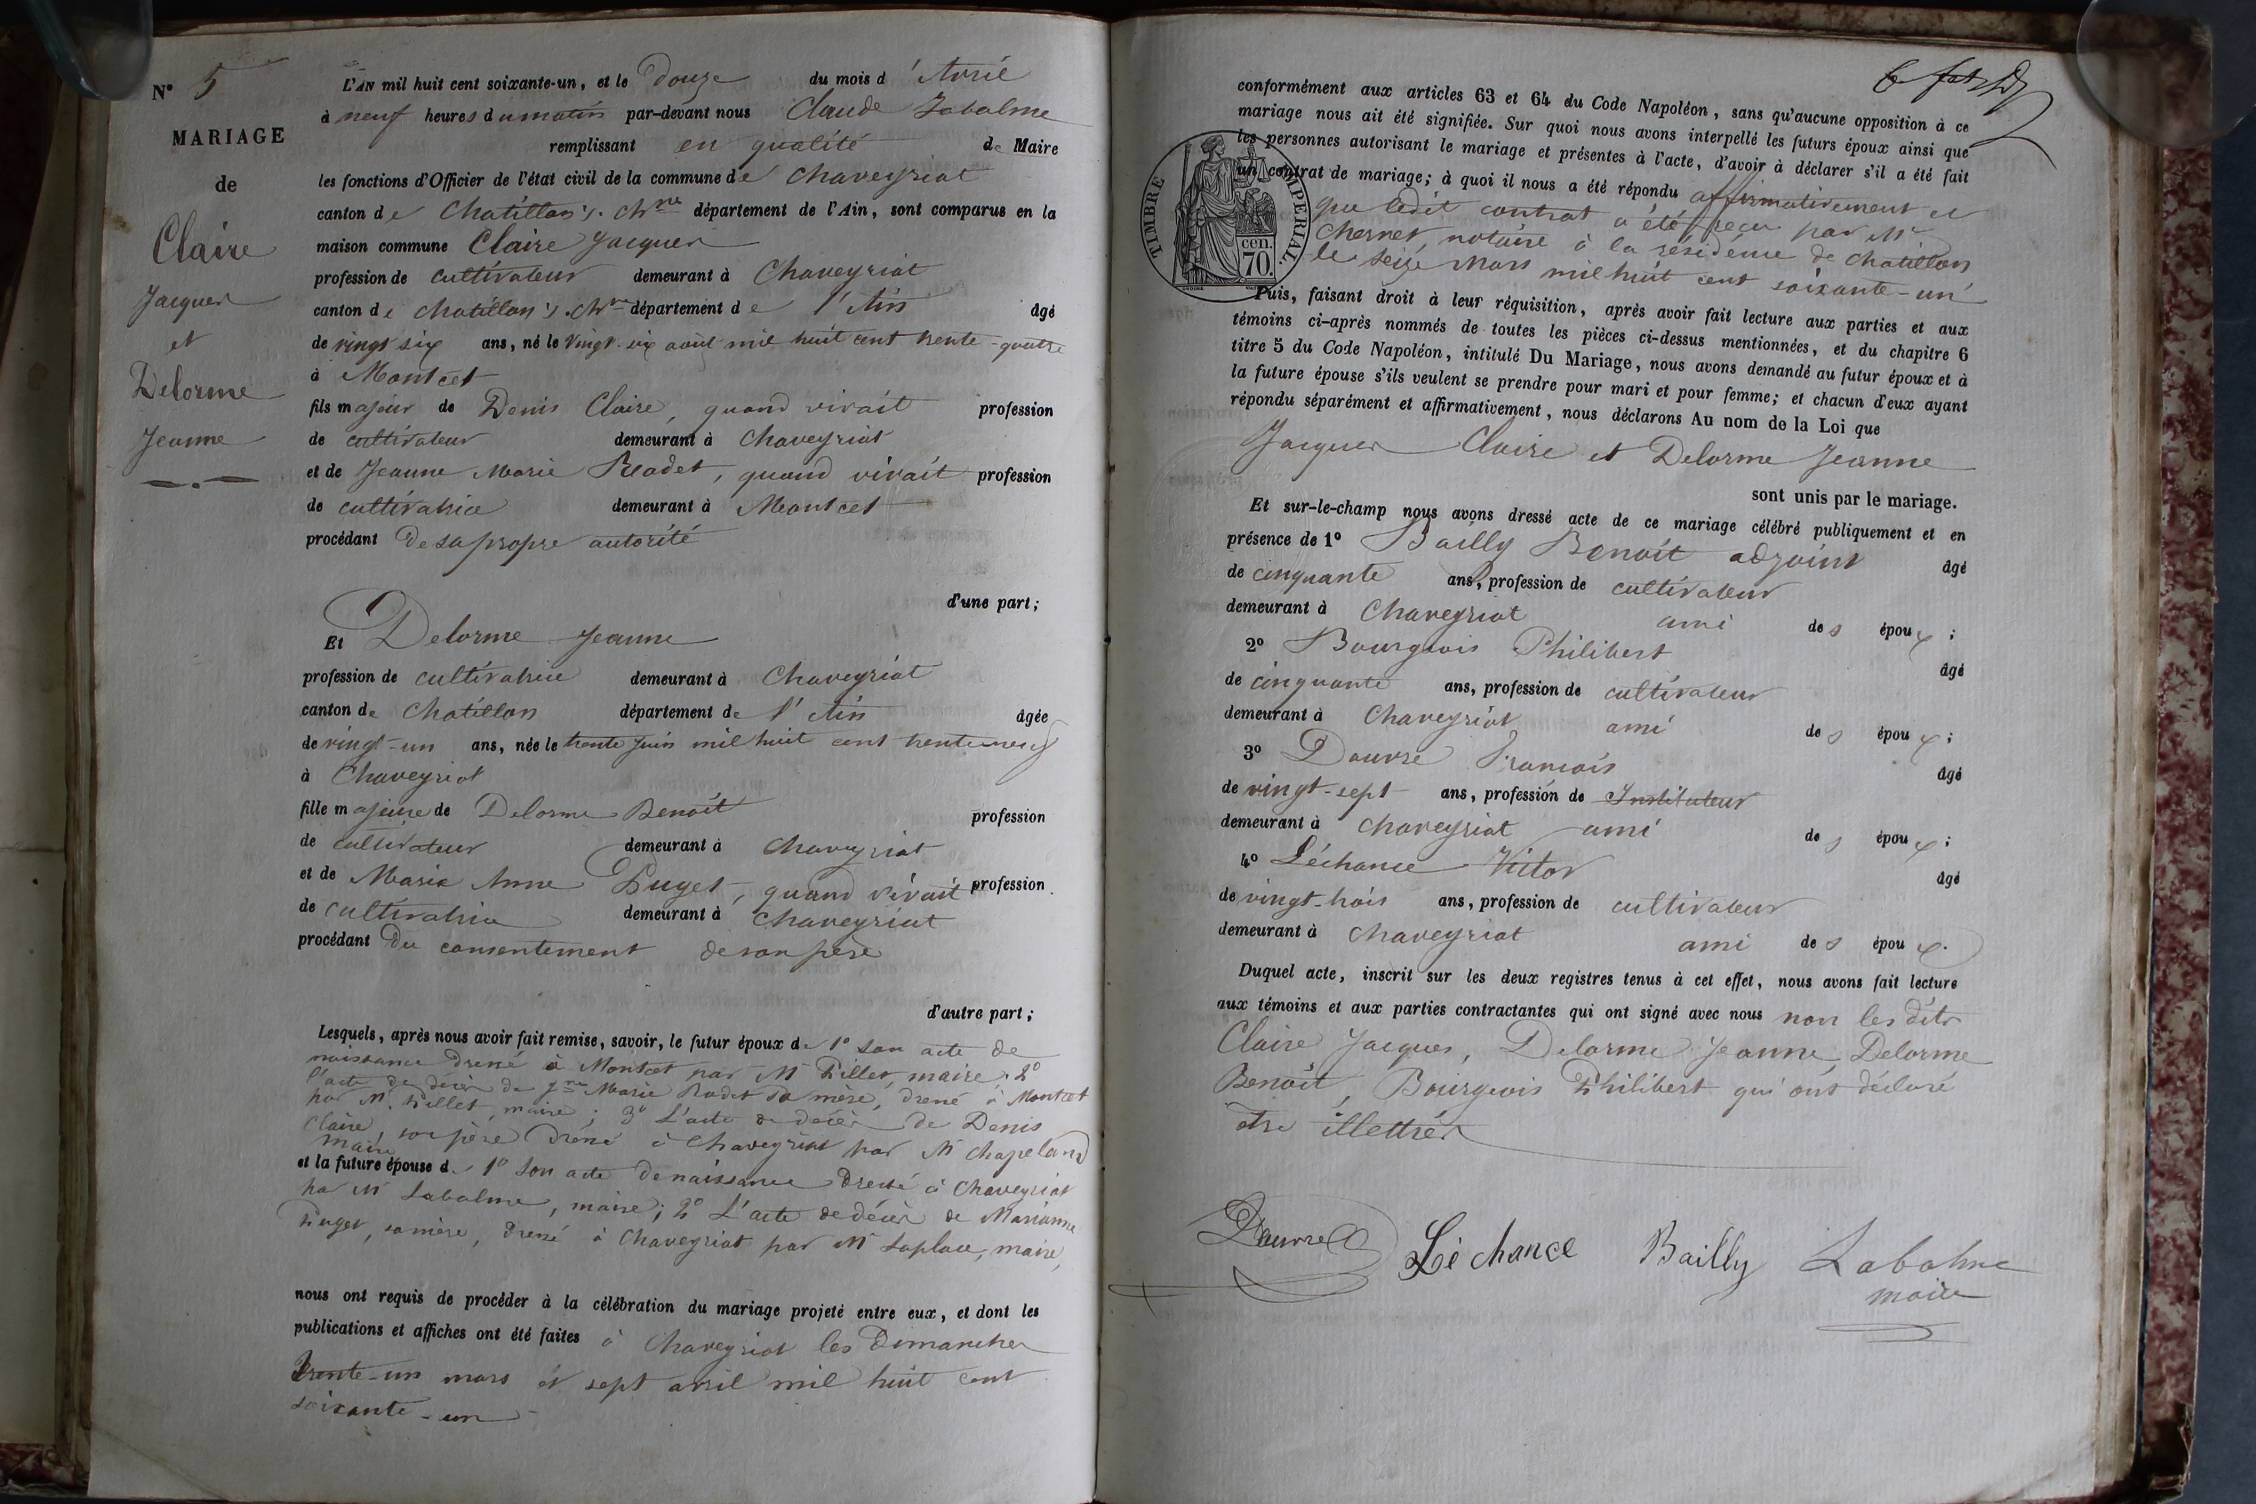 N° 5
MARIAGE
de
Claire
Jacques
et
Delorme
Jeanne
L'AN mil huit cent soixante-un, et le Douze du mois d'Avril
à neuf heures du matin par-devant nous Claude Labalme
remplissant en qualité de Maire
les fonctions d'Officier de l'état civil de la commune de Chaveyriat
canton de Chatillon s. Chne département de l'Ain, sont comparus en la
maison commune Claire Jacques
profession de cultivateur demeurant à Chaveyriat
canton de Chatillon s. Chne département de l'Ain âgé
de vingt six ans, né le vingt-six août mil huit cent trente-quatre
à Montcet
fils majeur de Denis Claire, quand vivait profession
de cultivateur demeurant à Chaveyriat
et de Jeanne Marie Radet, quand vivait profession
de cultivatrice demeurant à Montcet
procédant de sa propre autorité
d'une part;
Et Delorme Jeanne
profession de cultivatrice demeurant à Chaveyriat
canton de Chatillon département de l'Ain âgée
de vingt-un ans, née le trente juin mil huit cent trente neuf
à Chaveyriat
fille majeure de Delorme Benoît profession
de cultivateur demeurant à Chaveyriat
et de Marie Anne Puget, quand vivait profession
de cultivatrice demeurant à Chaveyriat
procédant Du consentement de son père
d'autre part;
Lesquels, après nous avoir fait remise, savoir, le futur époux de 1° son acte de
naissance dressé à Montcet par Mr Pillet, maire; 2°
l'acte de décès de Jne Marie Radet sa mère, dressé à Montcet
par M. Pillet, maire; 3° L'acte de décès de Denis
Claire, son père dressé à Chaveyriat par Mr Chapeland
maire
et la future épouse de 1° son acte de naissance dressé à Chaveyriat
par Mr Labalme, maire; 2° L'acte de décès de Marianne
Puget, sa mère, dressé à Chaveyriat par Mr Laplace, maire,
nous ont requis de procéder à la célébration du mariage projeté entre eux, et dont les
publications et affiches ont été faites à Chaveyriat les Dimanches
trente-un mars et sept avril mil huit cent
soixante-un
conformément aux articles 63 et 64 du Code Napoléon, sans qu'aucune opposition à ce
mariage nous ait été signifiée. Sur quoi nous avons interpellé les futurs époux ainsi que
les personnes autorisant le mariage et présentes à l'acte, d'avoir à déclarer s'il a été fait
un contrat de mariage; à quoi il nous a été répondu affirmativement et
que ledit contrat a été reçu par Mr
Chernet, notaire à la résidence de Chatillon
le seize Mars mil huit cent soixante-un
TIMBRE IMPERIAL
cen.
70.
Puis, faisant droit à leur réquisition, après avoir fait lecture aux parties et aux
témoins ci-après nommés de toutes les pièces ci-dessus mentionnées, et du chapitre 6
titre 5 du Code Napoléon, intitulé Du Mariage, nous avons demandé au futur époux et à
la future épouse s'ils veulent se prendre pour mari et pour femme; et chacun d'eux ayant
répondu séparément et affirmativement, nous déclarons Au nom de la Loi que
Jacques Claire et Delorme Jeanne
sont unis par le mariage.
Et sur-le-champ nous avons dressé acte de ce mariage célébré publiquement et en
présence de 1° Bailly Benoît adjoint âgé
de cinquante ans, profession de cultivateur
demeurant à Chaveyriat ami des époux;
2° Bourgeois Philibert âgé
de cinquante ans, profession de cultivateur
demeurant à Chaveyriat ami des époux;
3° Douvre François âgé
de vingt-sept ans, profession de Instituteur
demeurant à Chaveyriat ami des époux;
4° Léchance Victor âgé
de vingt-trois ans, profession de cultivateur
demeurant à Chaveyriat ami des époux.
Duquel acte, inscrit sur les deux registres tenus à cet effet, nous avons fait lecture
aux témoins et aux parties contractantes qui ont signé avec nous non les dits
Claire Jacques, Delorme Jeanne, Delorme
Benoît, Bourgeois Philibert qui ont déclaré
être illettrés
Douvre Léchance Bailly Labalme
maire